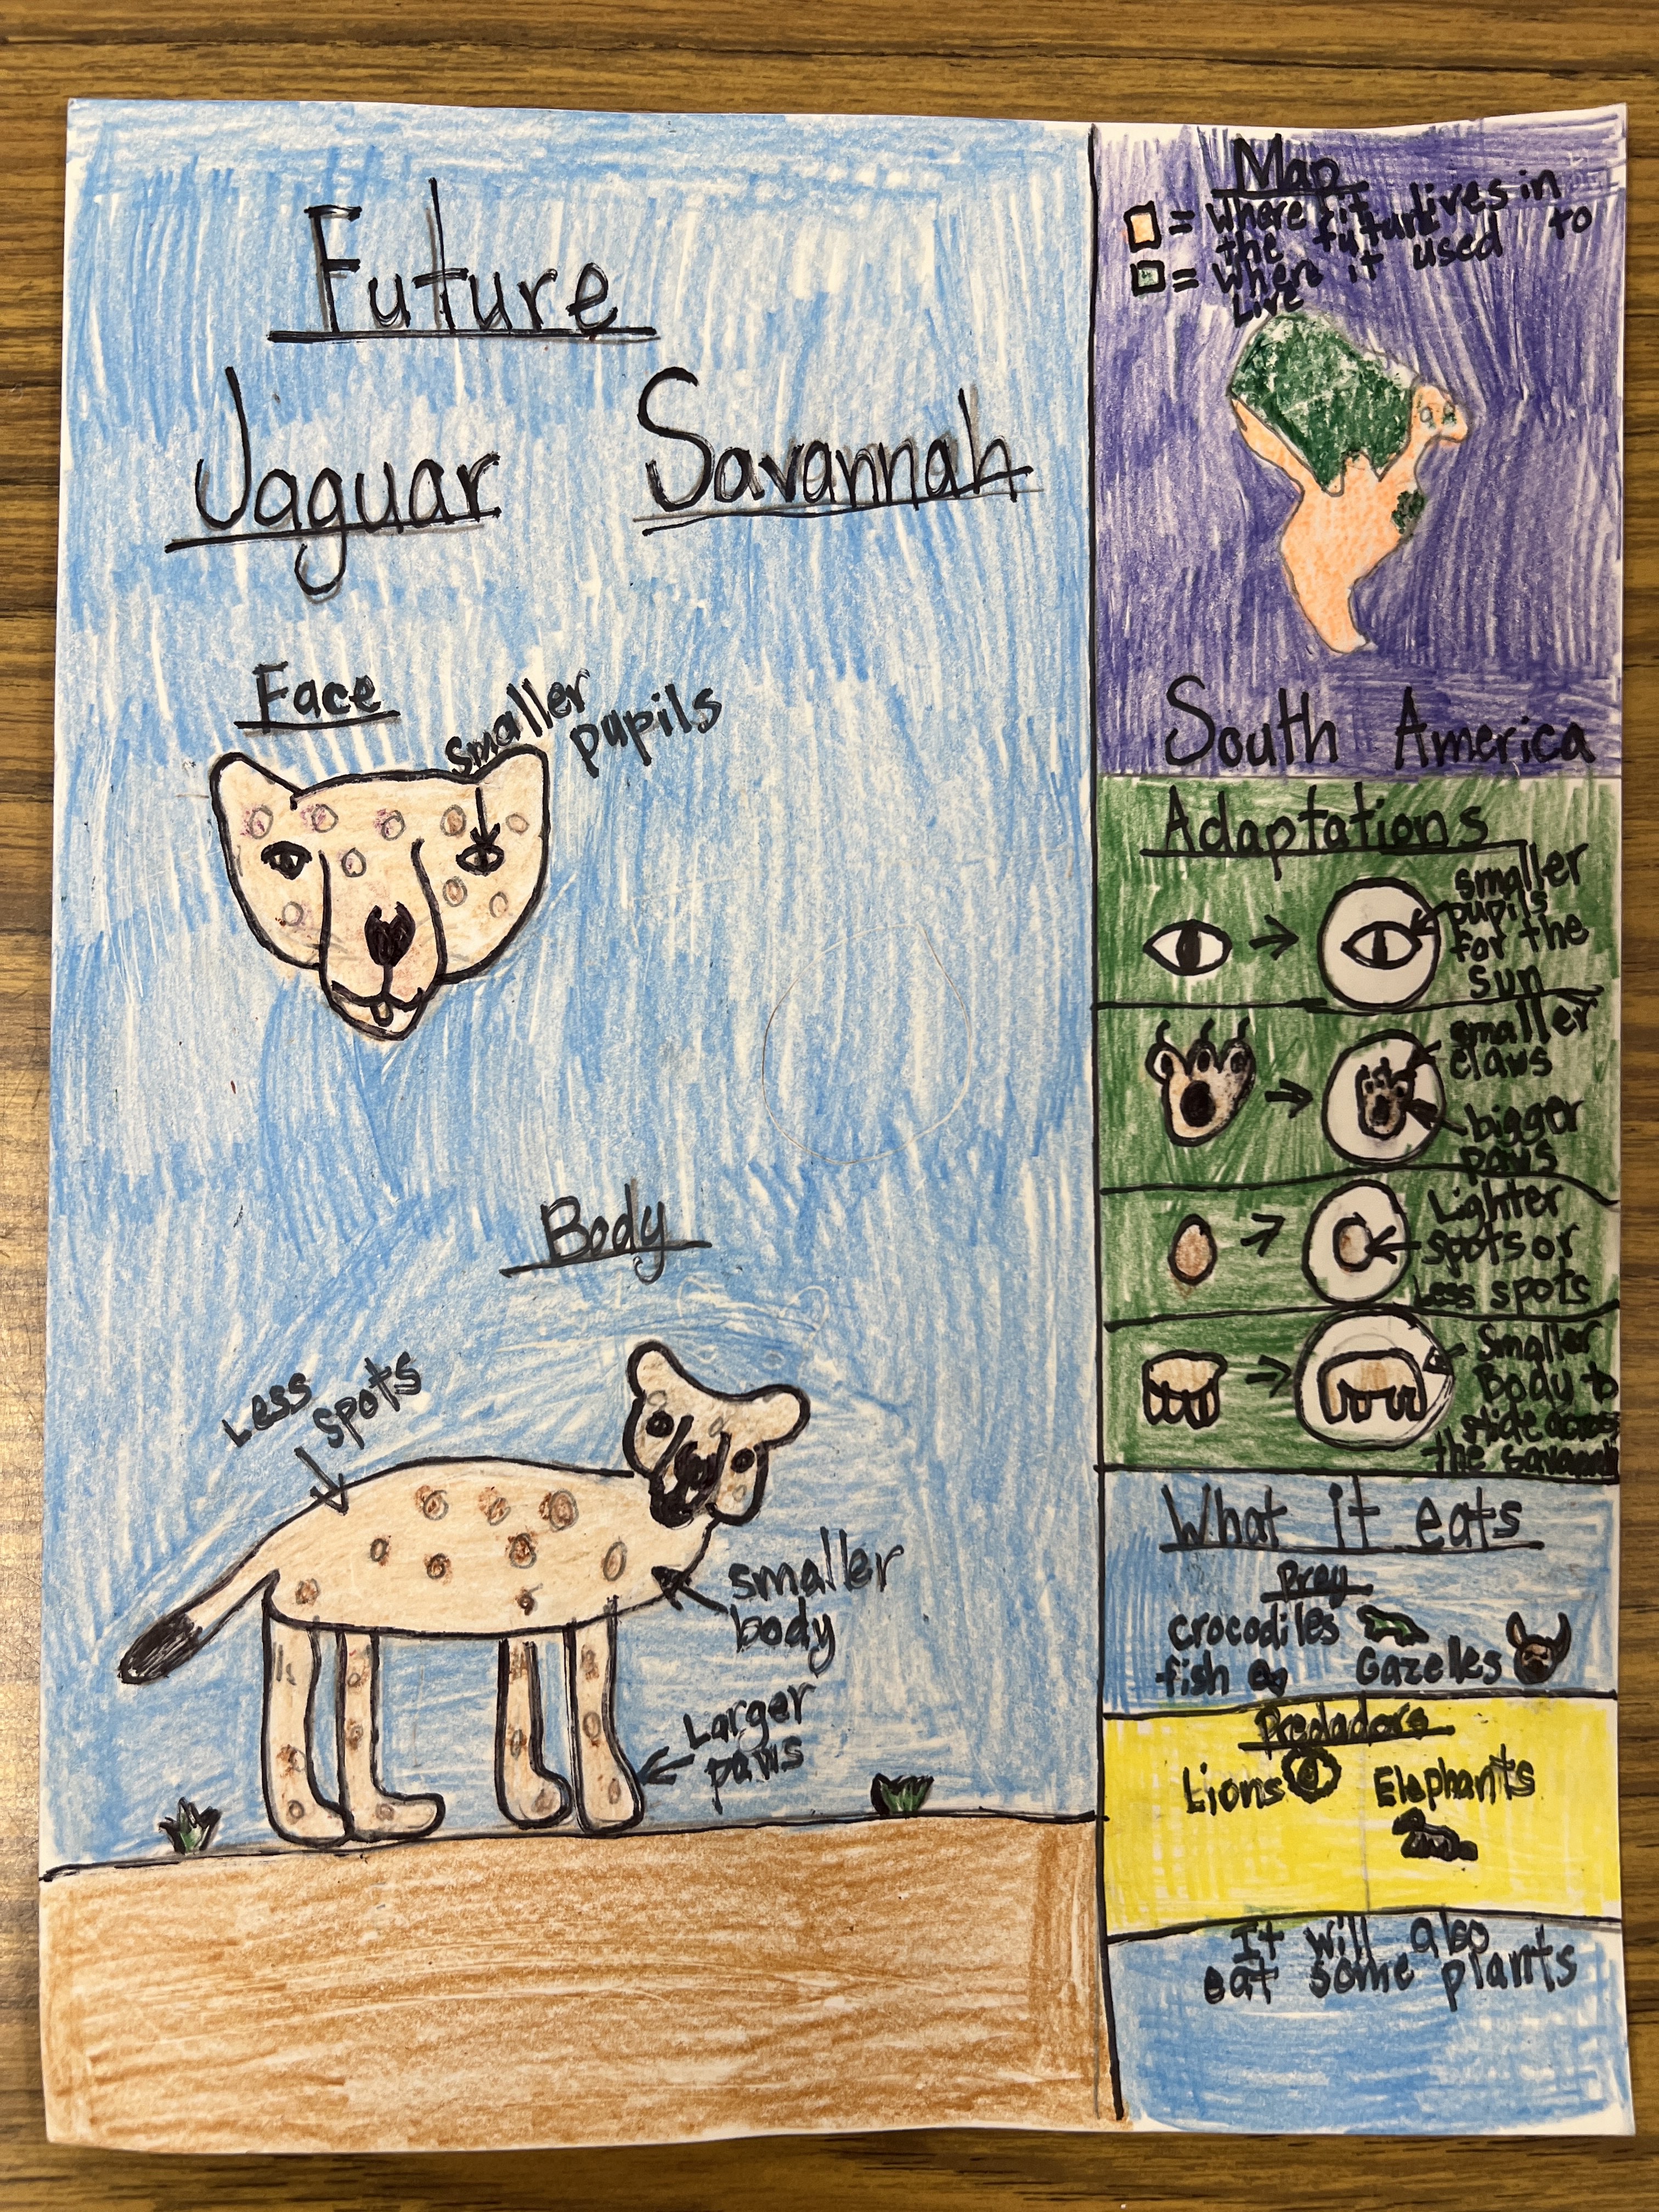 Future
Jaguar Savannah
Face
smaller
pupils
Body
Less
spots
smaller
body
Larger
paws
Map
= where it lives in
the future
= where it used to
Live
South America
Adaptations
smaller
pupils
for the
sun
smaller
claws
bigger
paws
Lighter
spots or
Less spots
Smaller
Body to
slide across
the savannah
What it eats
Prey
crocodiles
fish Gazelles
Predadors
Lions Elephants
It will also
eat some plants